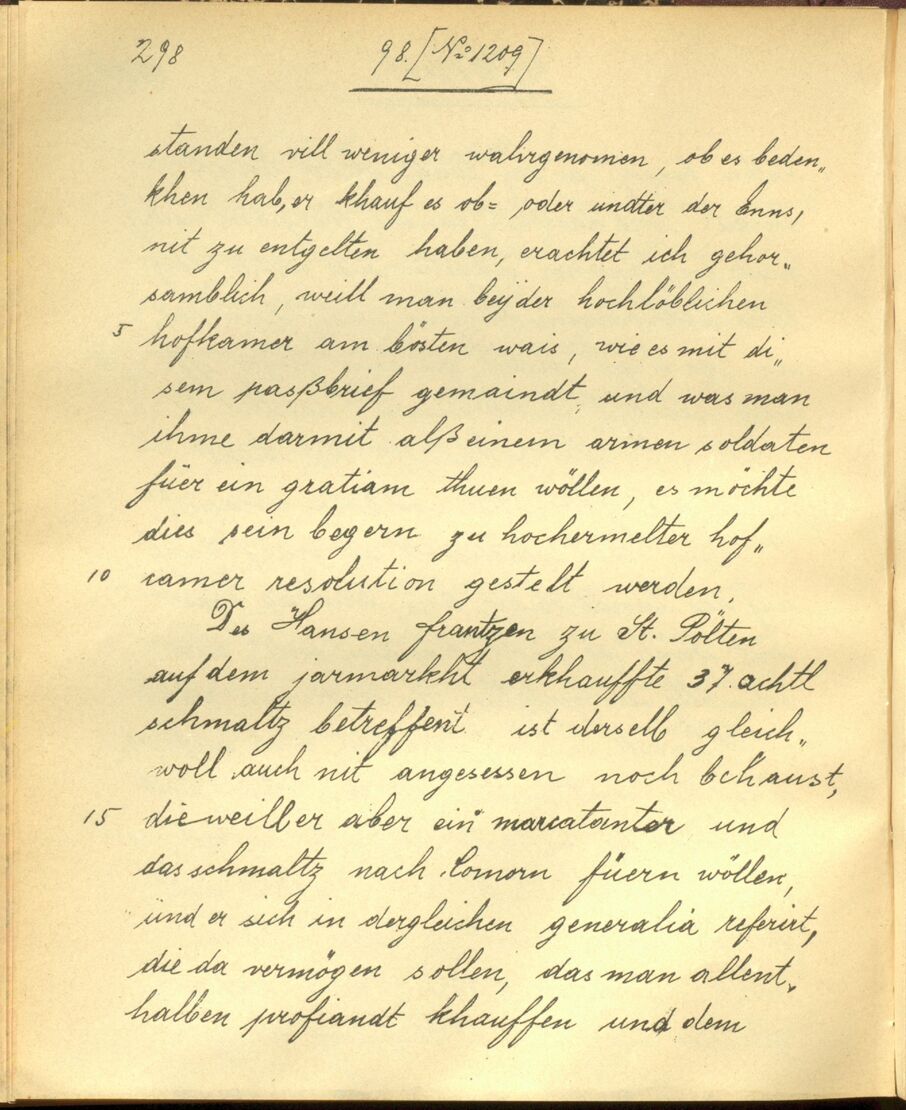 298 98. [№ 1209]
standen vill weniger wahrgenomen, ob es beden„
khen hab, er khauf es ob= oder undter der Enns,
nit zu entgelten haben, erachtet ich gehor„
samblich, weill man beÿ der hochlöblichen
5 hofkamer am bösten wais, wie es mit di„
sem pasßbrief gemaindt, und was man
ihme darmit alß einem armen soldaten
füer ein gratiam thuen wöllen, es möchte
dies sein begern zu hochermelter hof„
10 camer resolution gestelt werden.
Des Hansen frantzen zu St. Pölten
auf dem jarmarkht erkhauffte 37. achtl
schmaltz betreffent ist derselb gleich„
woll auch nit angesessen noch behaust,
15 die weill er aber ein marcatanter und
das schmaltz nach Comorn füern wöllen,
und er sich in dergleichen generalia referirt,
die da vermögen sollen, das man allent„
halben profiandt khauffen und dem